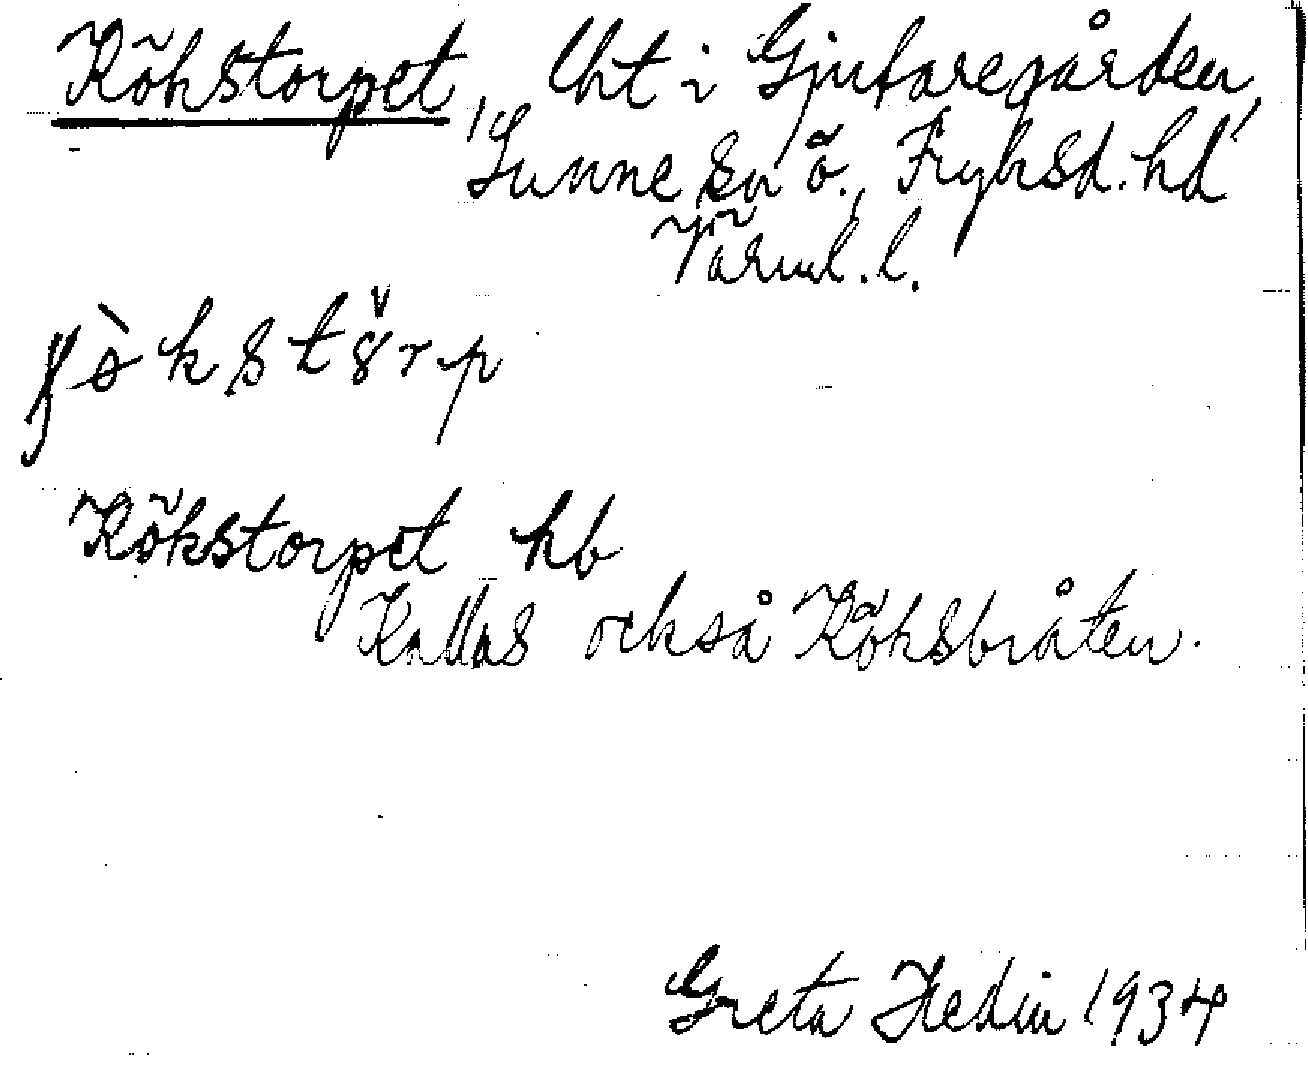 Kökstorpet, lht i Gjutaregården,
Sunne sn ö., Fryksd. hd
Värml. l.
Kökstorpet hb
Kallas också Köksbråten.
Greta Hedin 1934